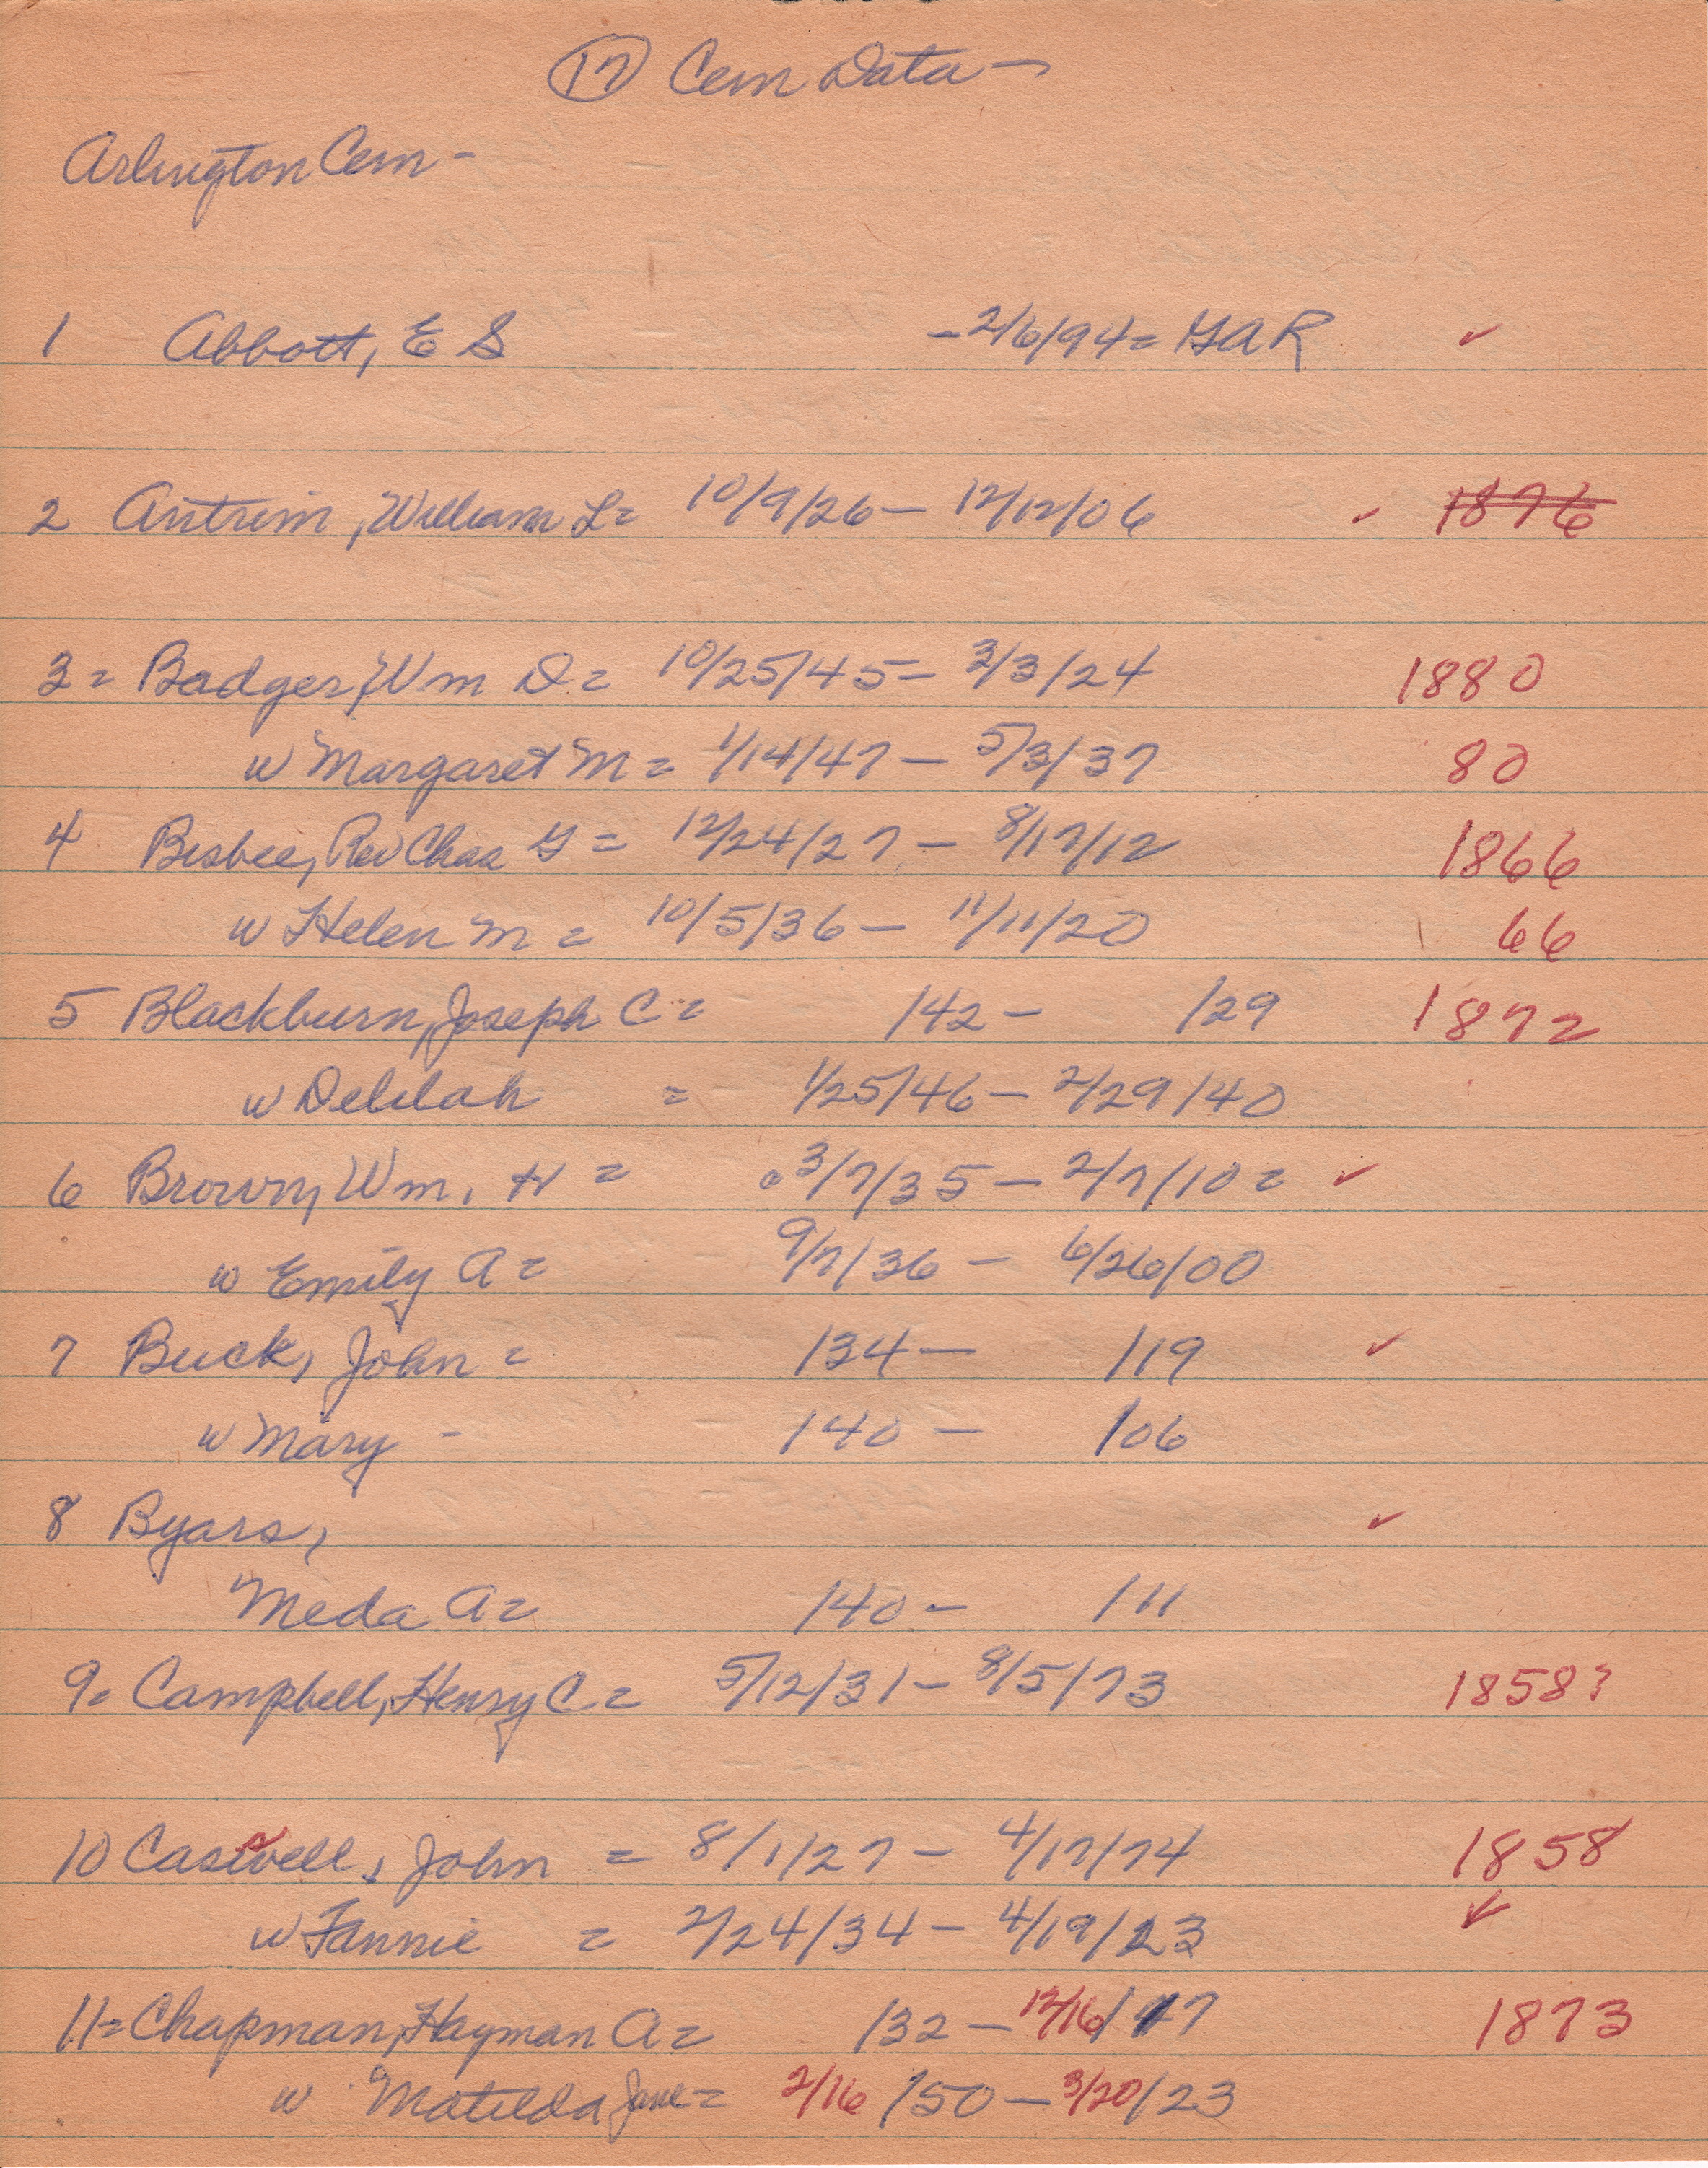 (17) Cem Data —
Arlington Cem -
1 Abbott, E S - 2/6/94 = GAR ✓
2 Antrim, William L = 10/9/26 — 12/12/06 ✓ 1876
3 = Badger, Wm D = 10/25/45 — 3/3/24 1880
w Margaret M = 1/14/47 — 5/3/37 80
4 Bisbee, Rev Chas G = 12/24/27 — 8/17/12 1866
w Helen M = 10/5/36 — 11/11/20 66
5 Blackburn, Joseph C = /42 — /29 1872
w Delilah = 1/25/46 — 2/29/40
6 Brown, Wm. H = 3/7/35 — 2/7/10 = ✓
w Emily A = 9/7/36 — 6/26/00
7 Buck, John = /34 — /19 ✓
w Mary - /40 — /06
8 Byars, ✓
Meda A = /40 — /11
9 = Campbell, Henry C = 5/12/31 — 8/5/73 1858?
10 Caswell, John = 8/1/27 — 4/17/74 1858
w Fannie = 2/24/34 — 4/19/23 ✓
11 = Chapman, Hayman A = /32 — 12/16/17 1873
w Matilda Jane = 2/16/50 — 3/20/23